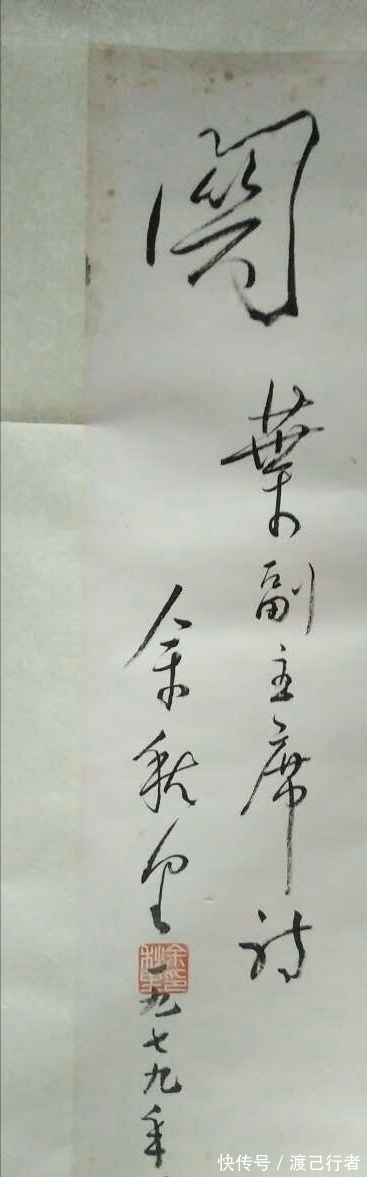 關
葉副主席詩
余秋里
余秋里印
一九七九年
快传号/渡己行者